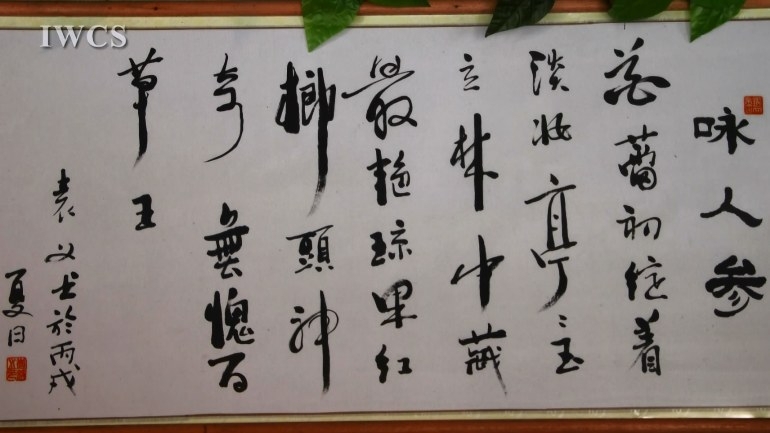 IWCS
咏人参
花蕾初绽着
淡妆亭々玉
立林中藏
最艳琼果红
榔頭神
奇無愧百
草王
袁书於丙戌
夏日